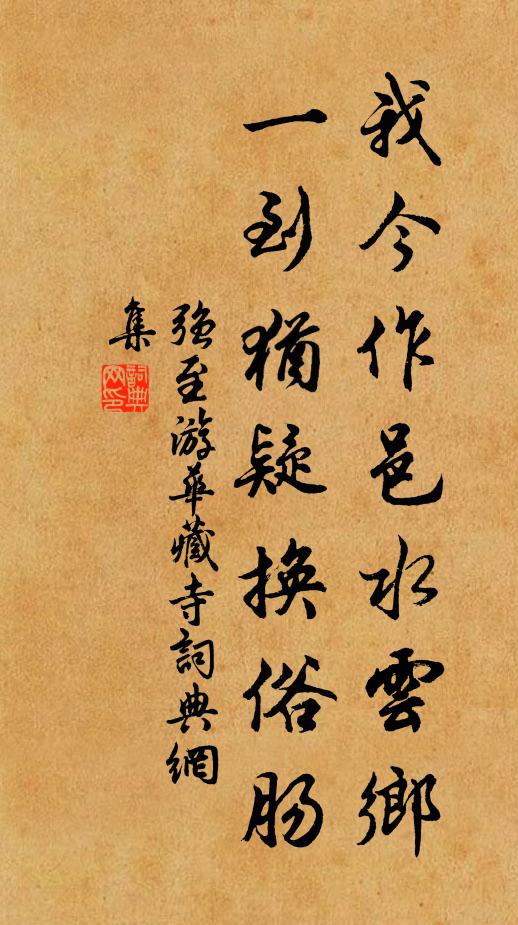 我今作邑水雲鄉
一到猶疑換俗腸
強至游華藏寺詞典網
集
詞典網印